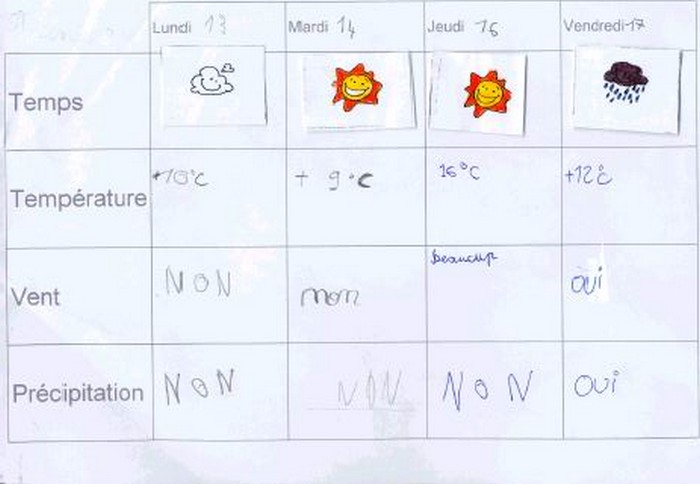 Lundi 13 Mardi 14 Jeudi 16 Vendredi 17
Temps
Température +10°C + 9°C 16°C +12°C
Vent NON non beaucup oui
Précipitation NON NON NON oui